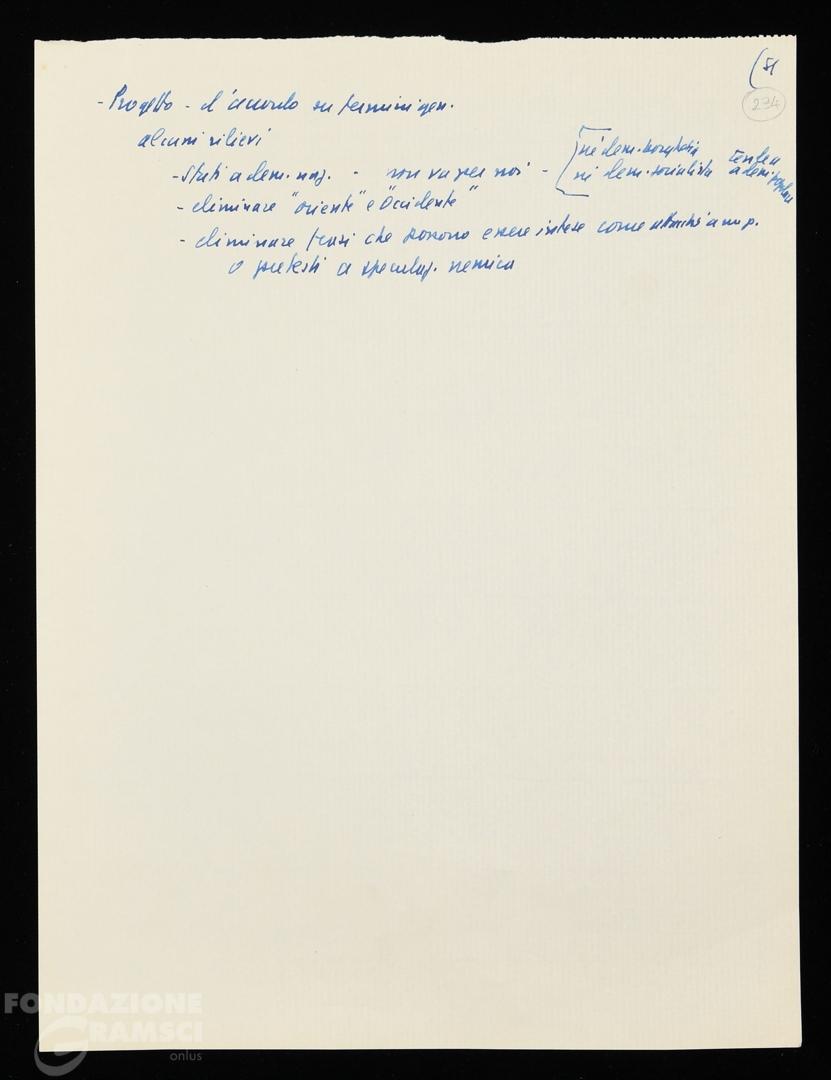 (51
234
- Progetto - d'accordo su termini gen.
alcuni rilievi
- Stati a dem. naz. - non va per noi - né dem. borghese
né dem. socialista
tendea a dem. popolare
- eliminare "oriente" e "Occidente"
- eliminare frasi che possono essere intese come attacchi a
o pretesti a speculaz. nemica
FONDAZIONE
GRAMSCI
onlus